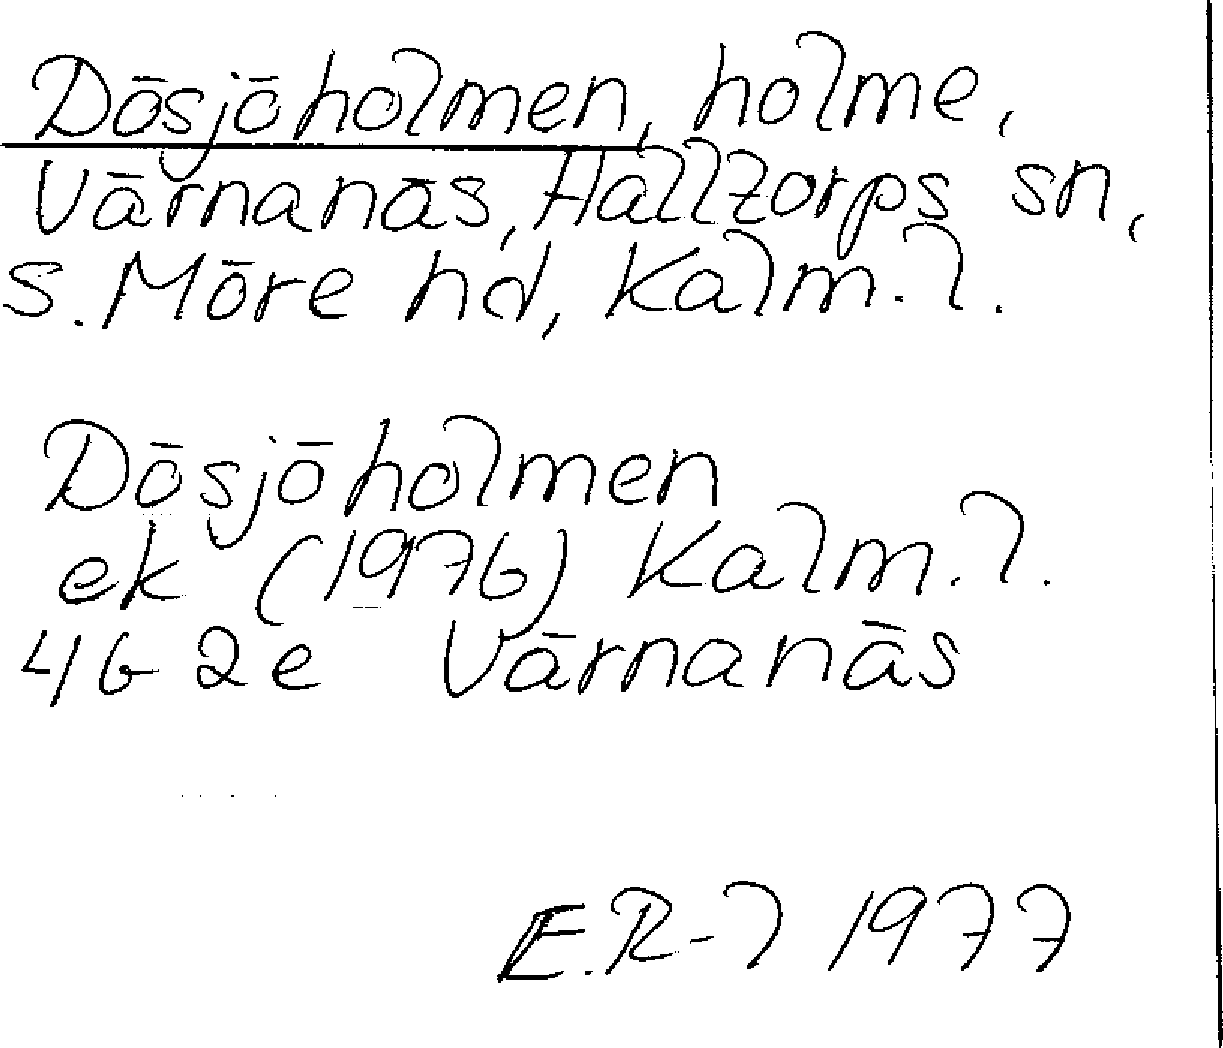 Dösjöholmen, holme,
Värnanäs, Halltorps sn,
S. Möre hd, Kalm. l.
Dösjöholmen
ek (1976) Kalm. l.
4G 2e Värnanäs
E.R-l 1977